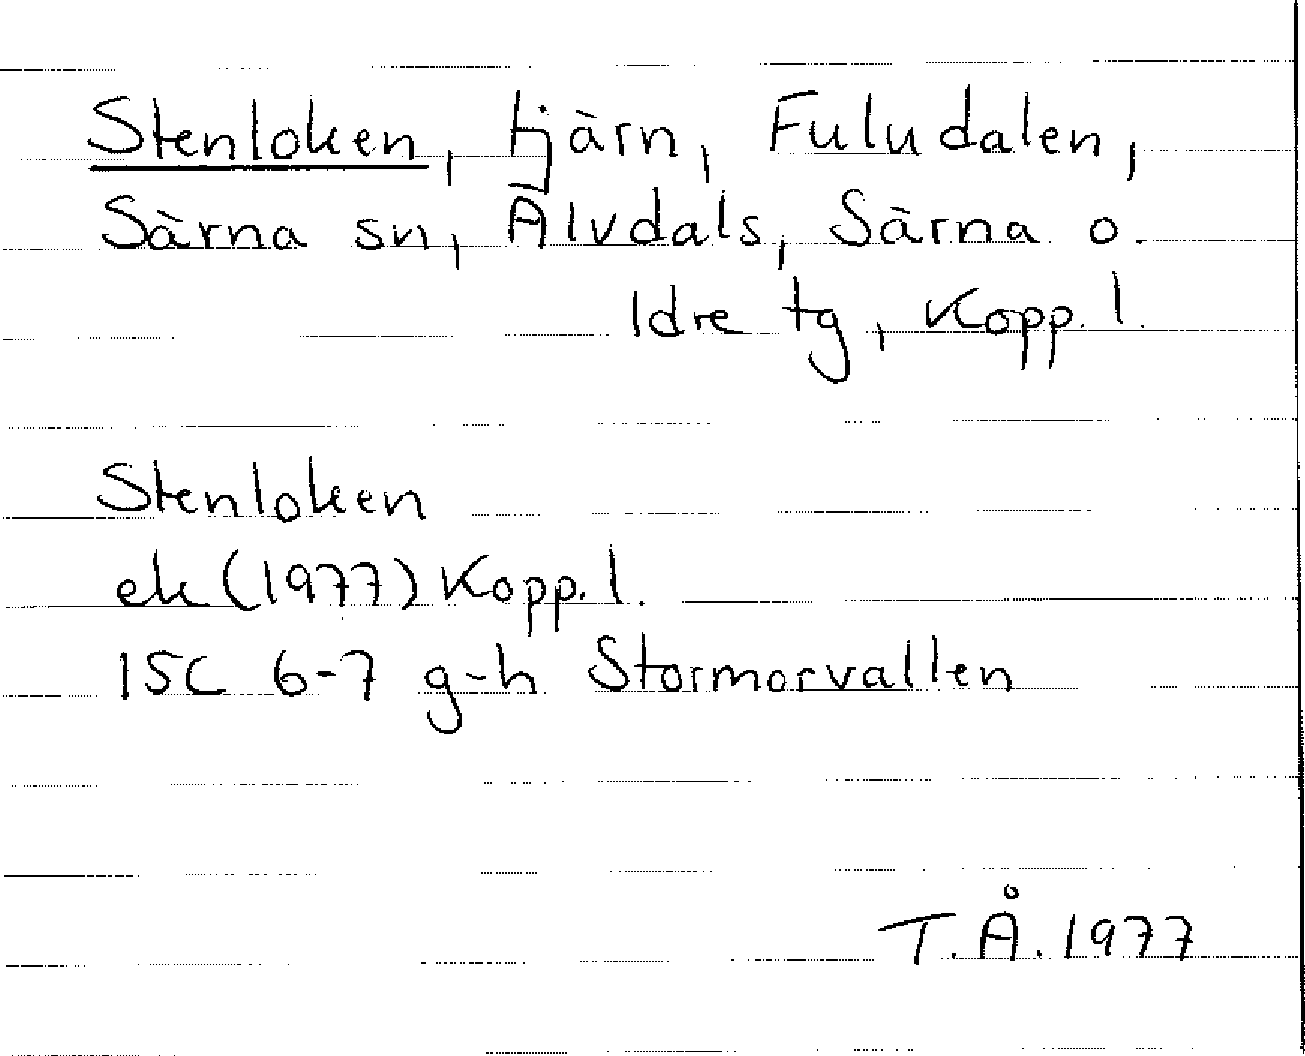 Stenloken, tjärn, Fuludalen,
Särna sn, Älvdals, Särna o.
Idre tg, Kopp. l.
Stenloken
ek (1977) Kopp. l.
15C 6-7 g-h Stormorvallen
T.Å. 1977